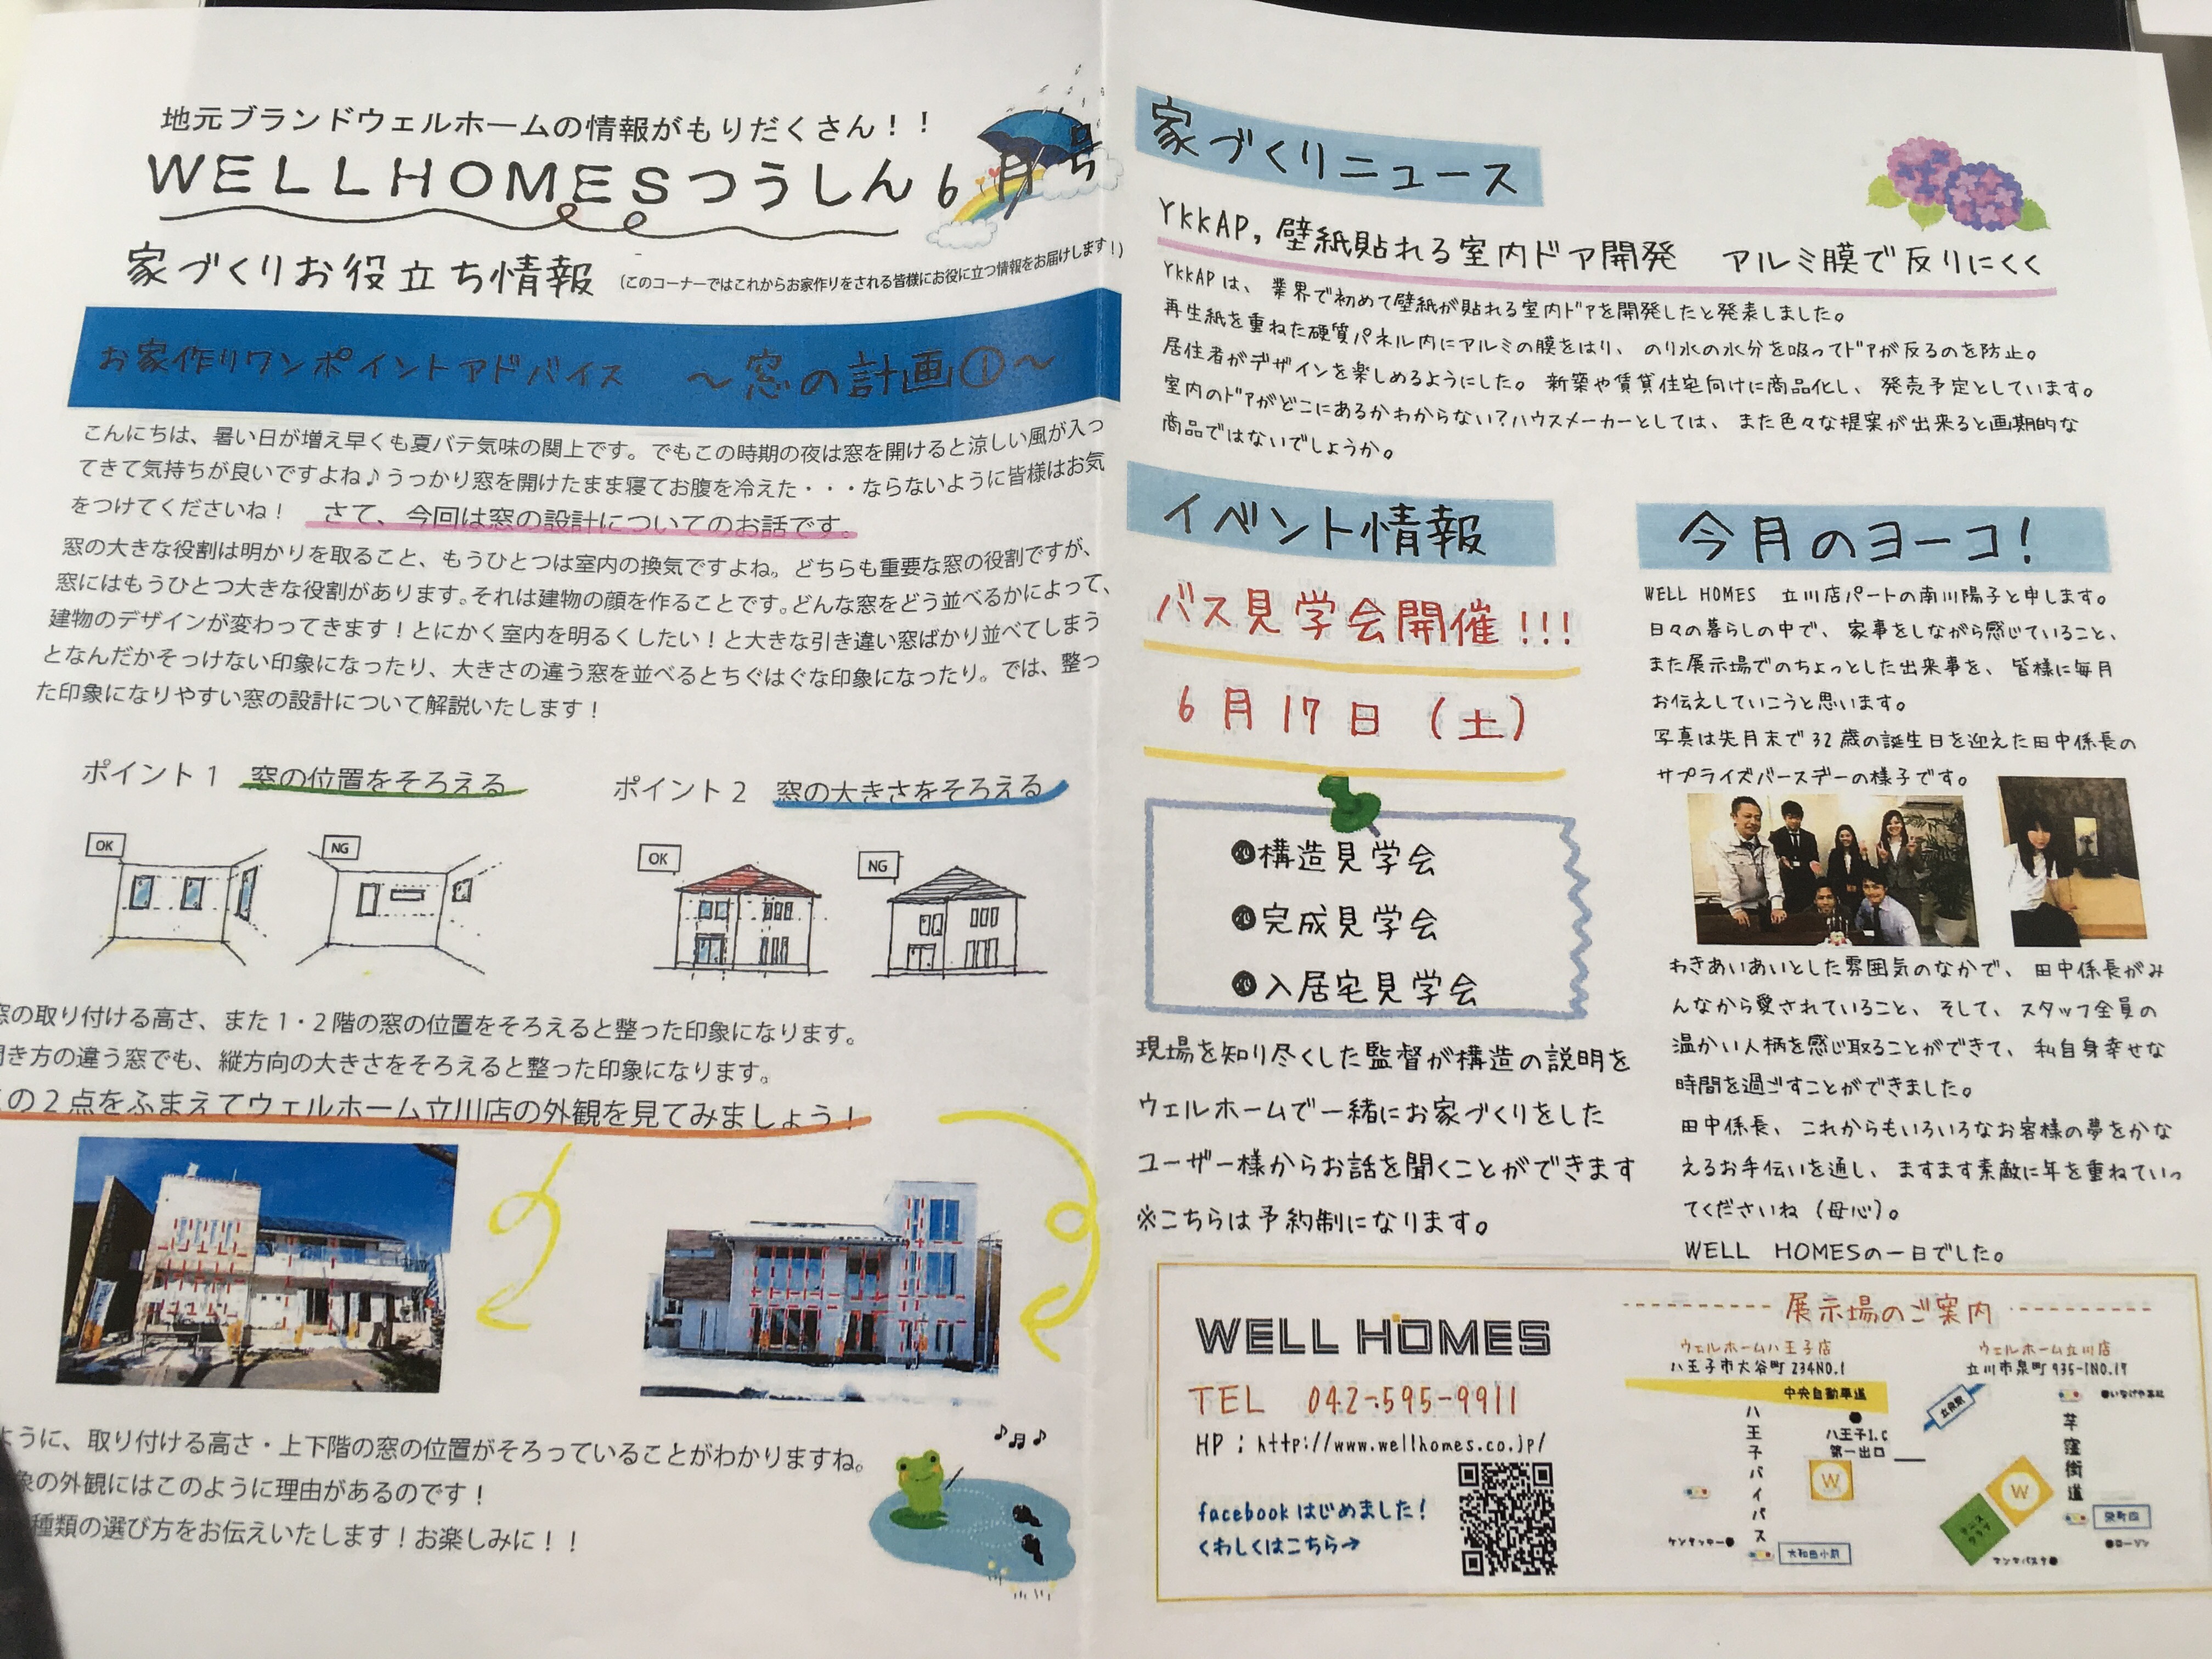 地元ブランドウェルホームの情報がもりだくさん！！
WELLHOMESつうしん6月号
家づくりお役立ち情報 (このコーナーではこれからお家作りをされる皆様にお役に立つ情報をお届けします！)
お家作りワンポイントアドバイス ～窓の計画①～
こんにちは、暑い日が増え早くも夏バテ気味の関上です。でもこの時期の夜は窓を開けると涼しい風が入っ
てきて気持ちが良いですよね♪うっかり窓を開けたまま寝てお腹を冷えた・・・ならないように皆様はお気
をつけてくださいね！ さて、今回は窓の設計についてのお話です。
窓の大きな役割は明かりを取ること、もうひとつは室内の換気ですよね。どちらも重要な窓の役割ですが、
窓にはもうひとつ大きな役割があります。それは建物の顔を作ることです。どんな窓をどう並べるかによって、
建物のデザインが変わってきます！とにかく室内を明るくしたい！と大きな引き違い窓ばかり並べてしまう
となんだかそっけない印象になったり、大きさの違う窓を並べるとちぐはぐな印象になったり。では、整っ
た印象になりやすい窓の設計について解説いたします！
ポイント1 窓の位置をそろえる
ポイント2 窓の大きさをそろえる
OK
NG
OK
NG
窓の取り付ける高さ、また1・2階の窓の位置をそろえると整った印象になります。
開き方の違う窓でも、縦方向の大きさをそろえると整った印象になります。
この2点をふまえてウェルホーム立川店の外観を見てみましょう！
ように、取り付ける高さ・上下階の窓の位置がそろっていることがわかりますね。
象の外観にはこのように理由があるのです！
種類の選び方をお伝えいたします！お楽しみに！！
家づくりニュース
YKKAP,壁紙貼れる室内ドア開発 アルミ膜で反りにくく
YKKAPは、業界で初めて壁紙が貼れる室内ドアを開発したと発表しました。
再生紙を重ねた硬質パネル内にアルミの膜をはり、のり水の水分を吸ってドアが反るのを防止。
居住者がデザインを楽しめるようにした。新築や賃貸住宅向けに商品化し、発売予定としています。
室内のドアがどこにあるかわからない？ハウスメーカーとしては、また色々な提案が出来ると画期的な
商品ではないでしょうか。
イベント情報
バス見学会開催！！！
6月17日（土）
構造見学会
完成見学会
入居宅見学会
現場を知り尽くした監督が構造の説明を
ウェルホームで一緒にお家づくりをした
ユーザー様からお話を聞くことができます
※こちらは予約制になります。
今月のヨーコ！
WELL HOMES 立川店パートの南川陽子と申します。
日々の暮らしの中で、家事をしながら感じていること、
また展示場でのちょっとした出来事を、皆様に毎月
お伝えしていこうと思います。
写真は先月末で32歳の誕生日を迎えた田中係長の
サプライズバースデーの様子です。
わきあいあいとした雰囲気のなかで、田中係長がみ
んなから愛されていること、そして、スタッフ全員の
温かい人柄を感じ取ることができて、私自身幸せな
時間を過ごすことができました。
田中係長、これからもいろいろなお客様の夢をかな
えるお手伝いを通し、ますます素敵に年を重ねていっ
てくださいね（母心）。
WELL HOMESの一日でした。
WELL HOMES
TEL 042-595-9911
HP：http://www.wellhomes.co.jp/
facebookはじめました！
くわしくはこちら→
展示場のご案内
ウェルホーム八王子店
八王子市大谷町234NO.1
中央自動車道
八王子バイパス
八王子I.C
第一出口
W
ケンタッキー
大和田小前
ウェルホーム立川店
立川市泉町935-1NO.17
立飛駅
いなげや本社
芋窪街道
W
テニスクラブ
栄町四
ローソン